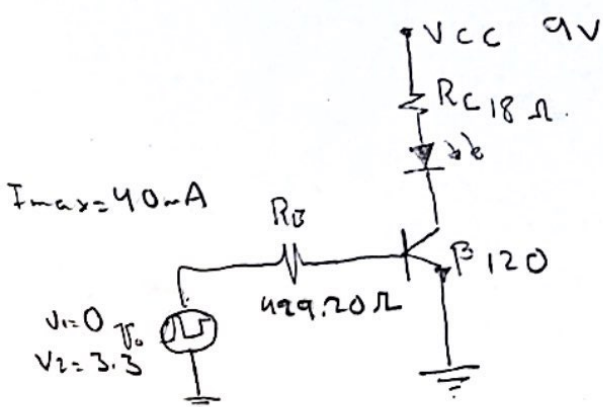 VCC 9V
RC 18 Ω.
Imax=40mA
RB
β 120
429.20Ω
V1=0
V2=3.3